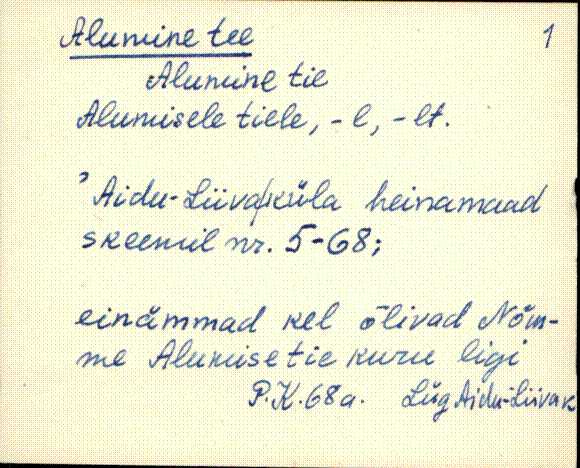 Alumine tee 1
Alumine tie
Alumisele tiele, -l, -lt.
'Aidu-Liiva/küla heinamaad
skeemil nr. 5-68;
einämmad kel õlivad Nõm-
me Alumise tie kuru ligi
P.K.68a. Lüg Aidu-Liiva k